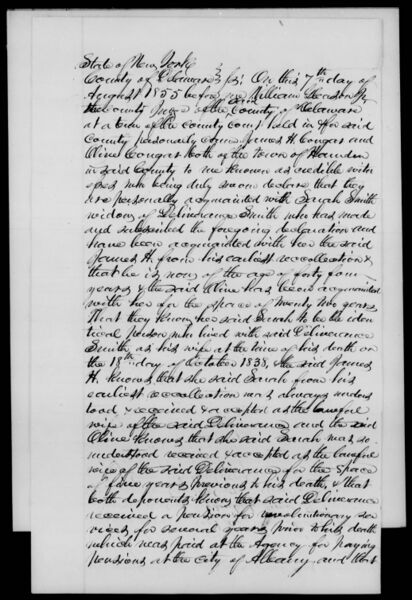 State of New York
County of Delaware } ss: On this 7th day of
August 1855 before me William Gleason Jr
the County Judge of the said County of Delaware
at a term of the County Court held in & for said
County personally came James H. Cougar and
Olive Cougar both of the town of Hamden
in said County to me known as credible witn
esses who being duly sworn declare that they
are personally acquainted with Sarah Smith
widow of Deliverance Smith who has made
and subscribed the foregoing declaration and
have been acquainted with her the said
James H. from his earliest recollection &
that he is now of the age of forty four
years & the said Olive has been acquainted
with her for the space of twenty two years
That they know her said Sarah to be the iden
tical person who lived with said Deliverance
Smith as his wife at the time of his death on
the 18th day of October 1838, & the said James
H. knows that she said Sarah from his
earliest recollection was always unders
tood & received & accepted as the lawful
wife of the said Deliverance and the said
Olive knows that she said Sarah was so
understood received & accepted as the lawful
wife of the said Deliverance for the space
of five years previous to his death, & that
both deponents know that said Deliverance
received a pension for revolutionary ser
vices, for several years prior to his death
which was paid at the Agency for paying
pensions at the City of Albany and that